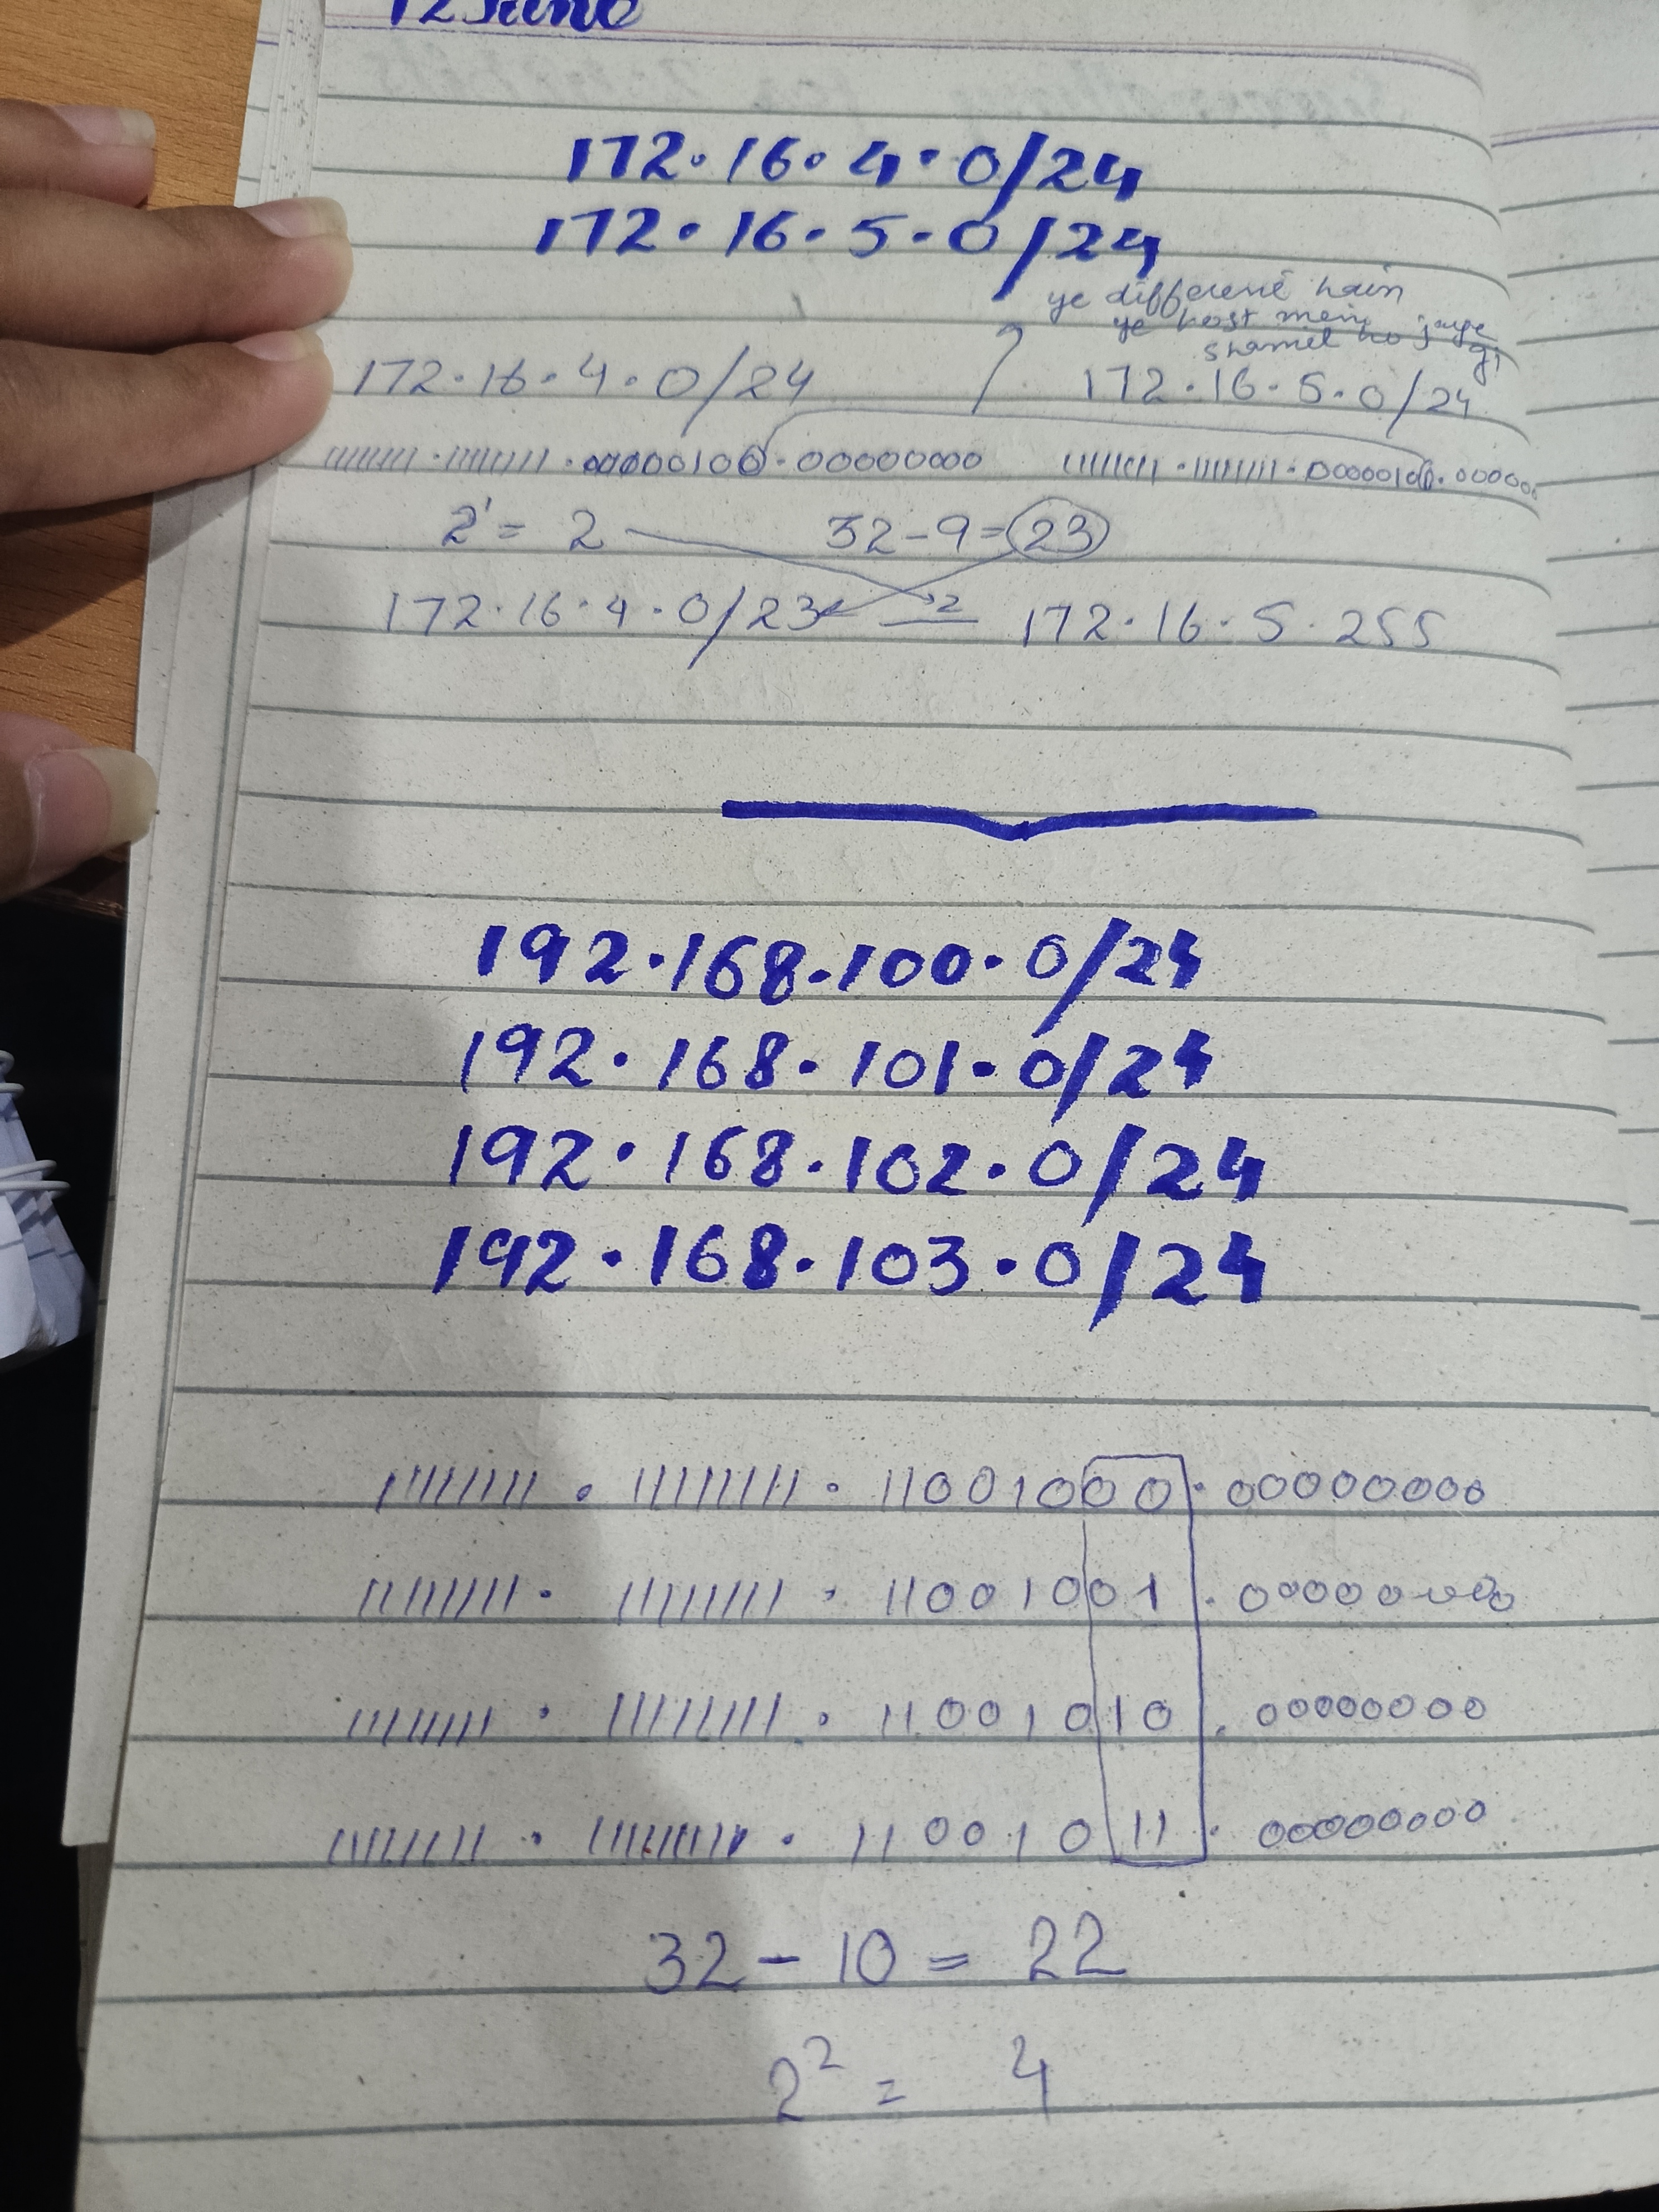 12 June
172.16.4.0/24
172.16.5.0/24
ye different hain
ye host mein
shamel ho jaye gi
172.16.4.0/24 172.16.5.0/24
11111111.11111111.00000100.00000000 11111111.11111111.00000100.000000
2¹ = 2 32-9=23
172.16.4.0/23 2 172.16.5.255
192.168.100.0/24
192.168.101.0/24
192.168.102.0/24
192.168.103.0/24
11111111.11111111.11001000.00000000
11111111.11111111.11001001.00000000
11111111.11111111.11001010.00000000
11111111.11111111.11001011.00000000
32-10=22
2² = 4